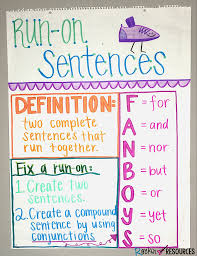 Run-on
Sentences
DEFINITION:
two complete
sentences that
run together.
Fix a run-on:
1. Create two
sentences.
2. Create a compound
sentence by using
conjunctions
F = for
A = and
N = nor
B = but
O = or
Y = yet
S = so
RESOURCES